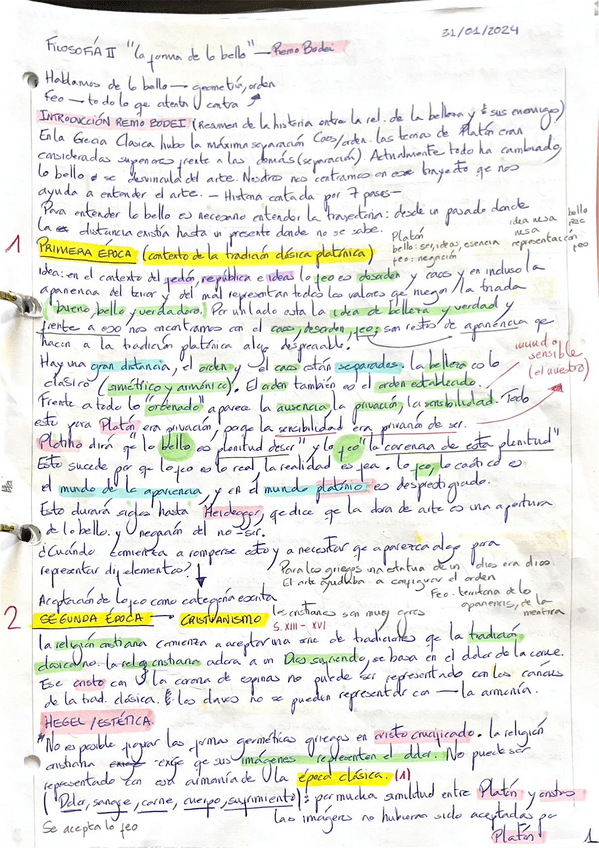 31/01/2024
FILOSOFÍA II "la forma de lo bello" — Remo Bodei
Hablamos de lo bello — geometría, orden
Feo — todo lo que atenta contra
INTRODUCCIÓN REMO BODEI (Resumen de la historia entre la rel. de la belleza y sus enemigos)
En la Grecia Clasica hubo la máxima separación Caos/orden. las teorías de Platón eran
consideradas superiores frente a las demás (separación). Actualmente todo ha cambiado,
lo bello se desvincula del arte. Nosotros nos centramos en ese trayecto que nos
ayuda a entender el arte. — Historia contada por 7 pases —
Para entender lo bello es necesario entender la trayectoria: desde un pasado donde
la distancia existía hasta un presente donde no se sabe.
Platón
bello: ser, ideas, esencia
feo: negación
idea mesa
mesa
representación
bello
feo
1 PRIMERA ÉPOCA (contexto de la tradición clásica platónica)
Idea: en el contexto del fedón, república e ideas lo feo es desorden y caos y en incluso la
apariencia del terror y del mal representan todos los valores que niegan la triada
(bueno, bello y verdadero). Por un lado esta la idea de belleza y verdad y
frente a eso nos encontramos con el caos, desorden, feo; son restos de apariencia que
hacen a la tradición platónica algo despreciable.
Hay una gran distancia, el orden y el caos están separados. la belleza es lo
clásico (simétrico y armónico). El orden también es el orden establecido.
mundo
sensible
(el nuestro)
Frente a todo lo "ordenado" aparece la ausencia, la privación, la sensibilidad. Todo
esto para Platón era privación, porque la sensibilidad era privación de ser.
Plotino dirá que "lo bello es plenitud de ser" y lo "feo" "la carencia de esta plenitud"
Esto sucede por que lo feo es lo real, la realidad es fea. lo feo, lo caótico es
el mundo de la apariencia, y en el mundo platónico es desprestigiado.
Esto durará siglos hasta Heidegger, que dice que la obra de arte es una apertura
de lo bello y negación del no-ser.
¿Cuándo comienza a romperse esto y a necesitar que aparezca algo para
representar elementos?
Para los griegos una estatua de un dios era dios
El arte ayudaba a configurar el orden
Feo: territorio de lo
apariencia, de la
mentira
Aceptación de lo feo como categoría escrita
2 SEGUNDA ÉPOCA — CRISTIANISMO
los cristianos son muy
S. XIII - XVI
la religión cristiana comienza a aceptar una serie de tradiciones que la tradición
clásica no. la relig cristiana adora a un Dios sufriendo, se basa en el dolor de la carne.
Ese cristo con la corona de espinas no puede ser representado con los cánones
de la trad. clásica. los clavos no se pueden representar con — la armonía.
HEGEL / ESTÉTICA.
"No es posible figurar las formas geométricas griegas en cristo crucificado. la religión
cristiana exige que sus imágenes representen el dolor. No puede ser
representado con esa armonía de la época clásica. (1)
("Dolor, sangre, carne, cuerpo, sufrimiento): por mucha similitud entre Platón y cristo
Se acepta lo feo
las imágenes no hubieran sido aceptadas por
Platón
1